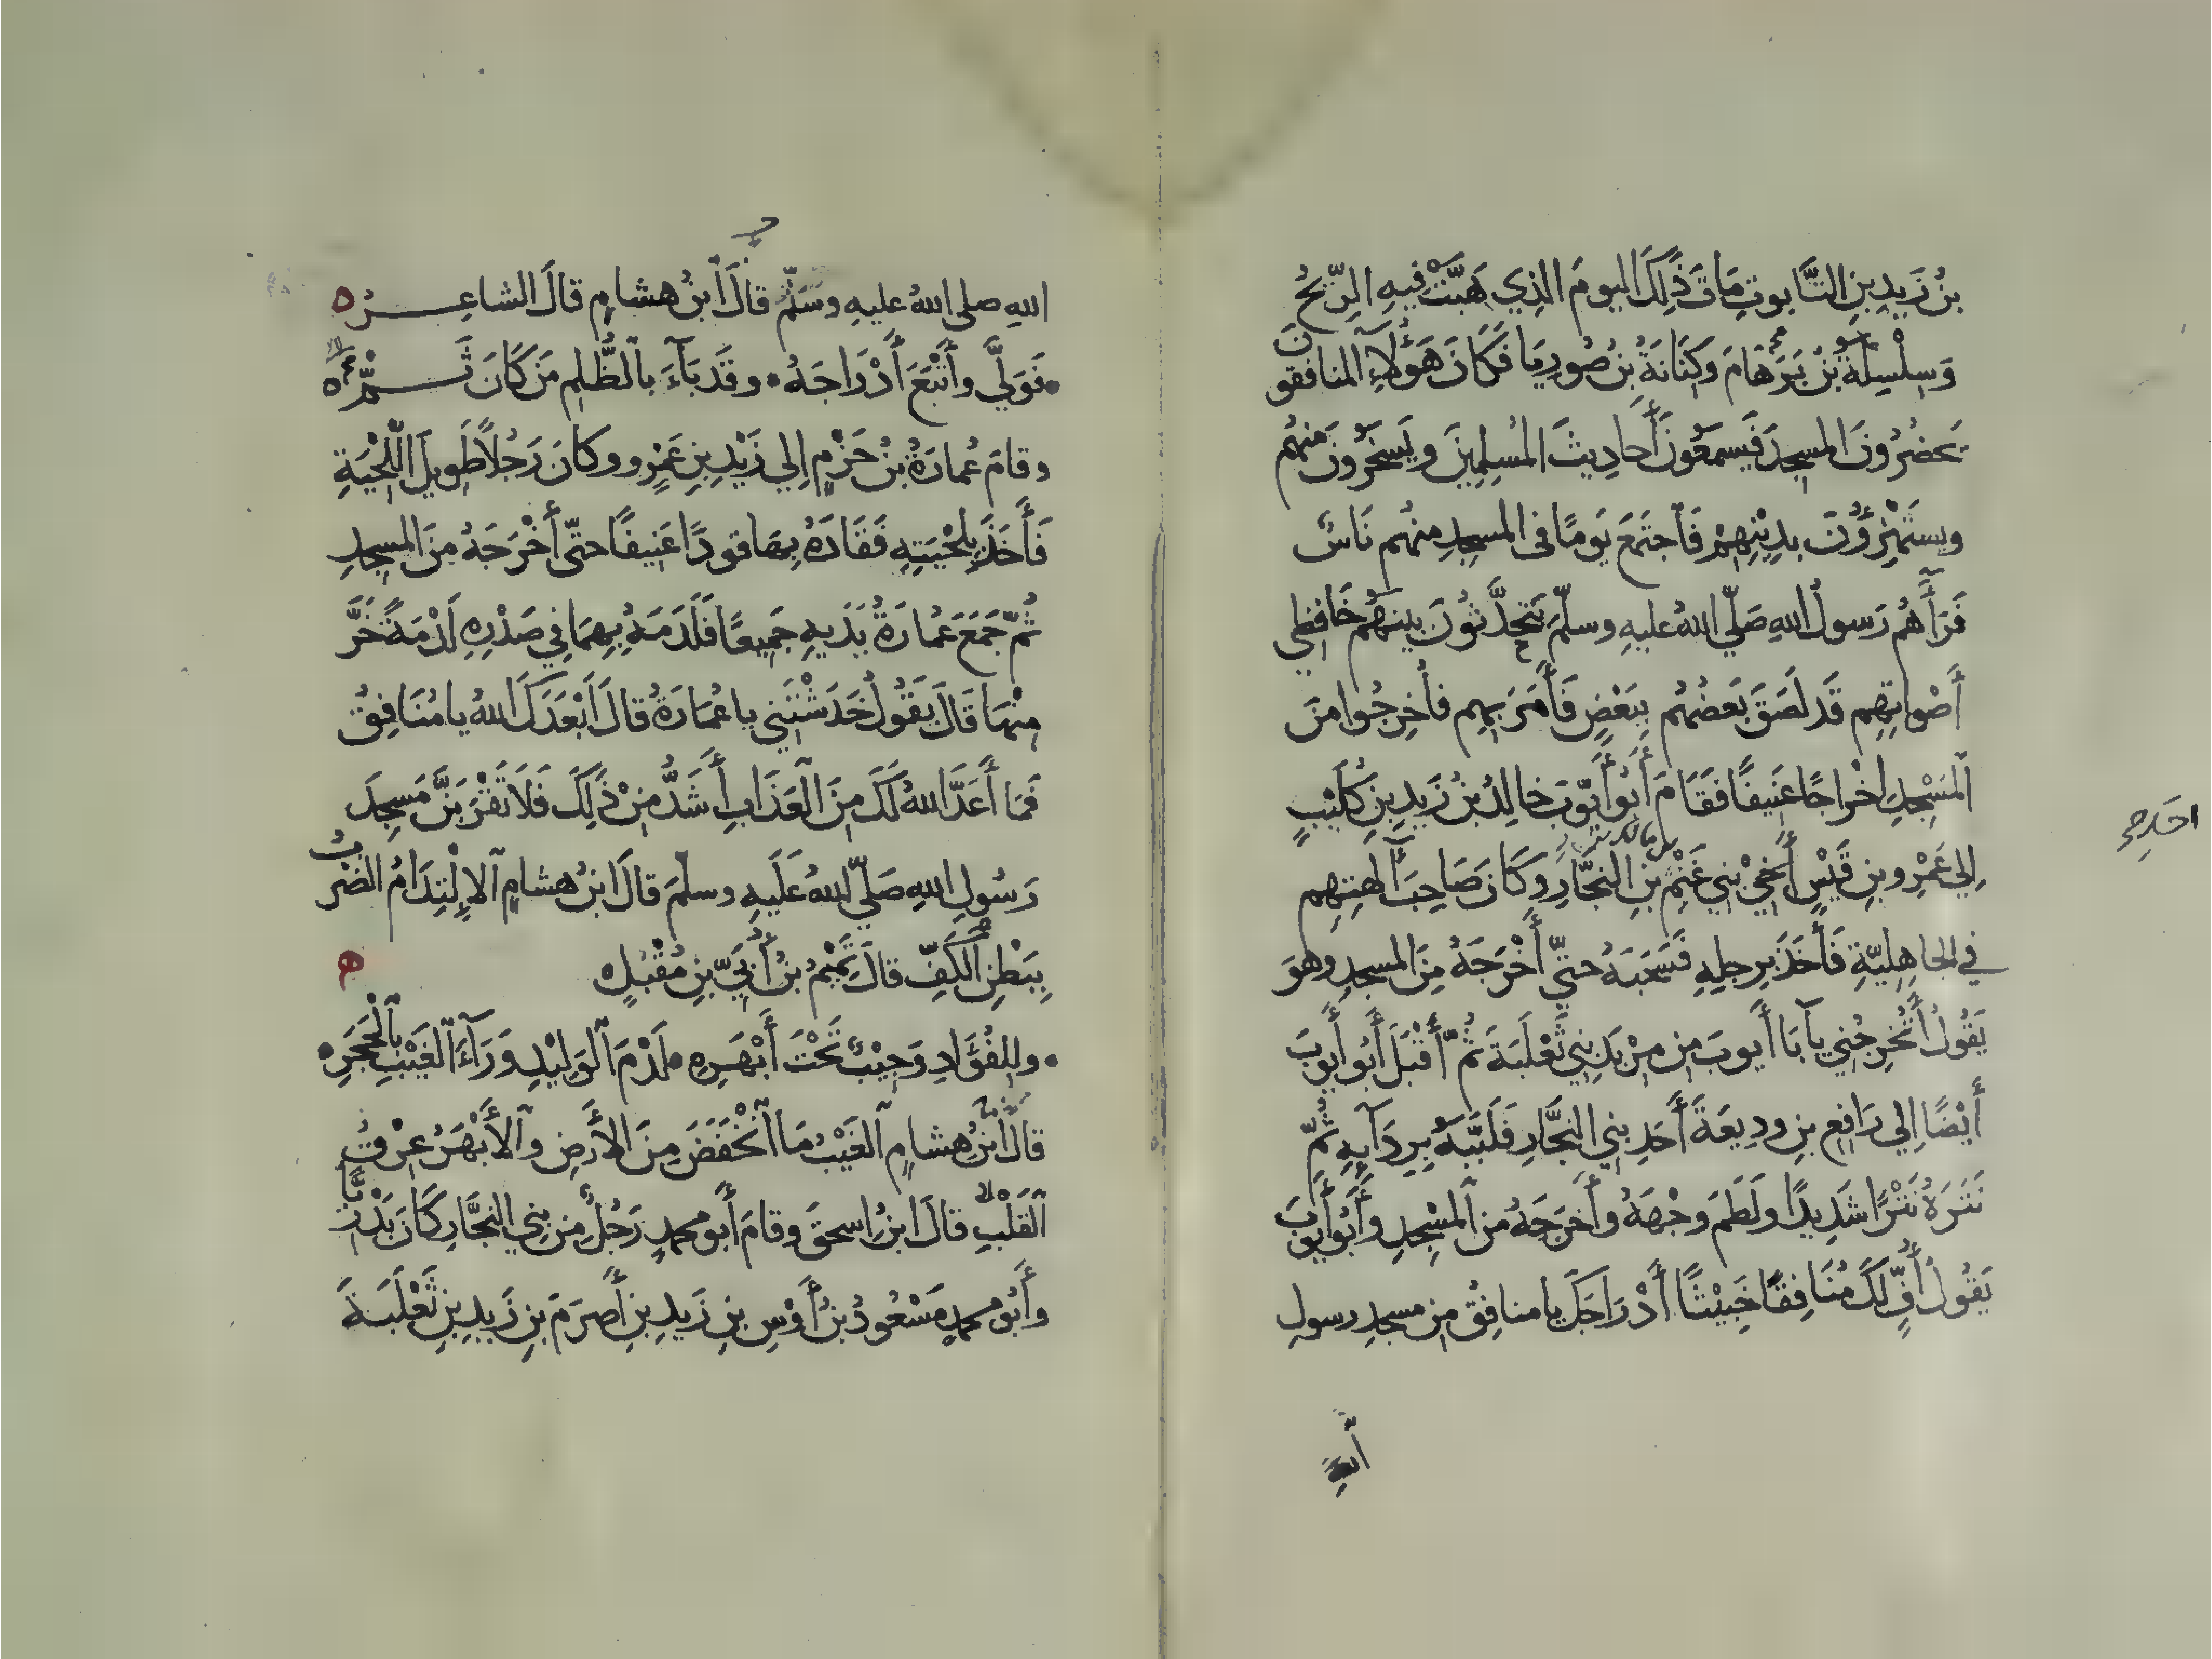 بنُ زَيدِ بنِ التَّابوتِ مَاتَ ذَلِكَ اليومَ الذِي هَبَّتْ فيهِ الرِّيحُ
وَسِلْسِلَةُ بنُ بَرَهَامَ وكِنَانَةُ بنُ صُورِيَا فَكَانَ هَؤُلَاءِ المنافقون
يَحضُرُونَ المسجِدَ فَيَسمَعُونَ أَحَادِيثَ المُسلِمِينَ ويَسخَرُونَ منهُم
ويستَهْزِؤُنَ بدِينِهِمْ فَاَجتَمَعَ يَومًا فى المسجدِ منهُم نَاسٌ
فَرَآهُم رَسولُ اللهِ صَلّي اللهُ عليهِ وسلّمَ يَتَحدَّثُونَ بينَهُم خَافِظِي
أَصْواتِهِم قَد لَصَقَ بَعضُهُم بِبَعْضٍ فَأَمَرَ بِهِم فأُخرِجُوا منَ
اَلمَسْجِدِ اخْراجًا عَنِيفًا فَقَامَ أَبُو أَيُّوبَ خالِدُ بنُ زَيدِ بنِ كُلَيْبٍ
اِلي عَمْرِو بنِ قَيْسٍ أَخِي بَنِي غَنْمِ بنِ النجَّارِ وكَانَ صَاحِبَ آلهتِهِم
في الجاهِلِيّةِ فَأَخَذَ بِرِجلِهِ فَسَحَبَهُ حتيّ أَخْرَجَهُ مِنَ المسجدِ وهوَ
يَقُولُ أَتُخرِجُنِي يَآبَا أَيوبَ مِن مِرْبَدِ بَنِي ثَعْلَبَةَ ثُمّ أَقْبَلَ أَبُو أَيوبَ
أَيْضًا اِلي رَافِعِ بنِ وديعَةَ أَحَدِ بنِي النجَّارِ فَلَبَّبَهُ بِرِدَآيِهِ ثُمّ
نَتَرَهُ نَتْرًا شَدِيدًا ولَطَمَ وجْهَهُ وأَخرَجَهُ من اَلمسْجِدِ وأَبُو أَيوبَ
يَقُولُ أُفٍّ لَكَ مُنَافِقًا خَبِيْثًا أَدْرَاجَكَ يا منافِقُ مِن مسجدِ رسولِ
اللهِ صلي اللهُ عليهِ وسَلّمَ قالَ اَبنُ هشامٍ قالَ الشاعِرُ ه
فَوَلَّي وأَتْبَعَ أَدْرَاجَهُ وقَد بَآءَ بالظُّلمِ مَن كَانَ ثَمّ
وقامَ عُمارَةُ بنُ حَزْمٍ اِلي زَيْدِ بنِ عَمْرٍو وكانَ رَجُلًا طَوِيلَ اللِّحْيَةِ
فَأَخَذَ بِلحْيَتِهِ فَقَادَهُ بِهَا قودًا عَنِيفًا حتّي أَخْرَجَهُ منَ المسجدِ
ثُمّ جَمَعَ عُمَارَةُ يَدَيهِ جَمِيعًا فَلَدَمَهُ بِهِمَا فِي صَدْرِهِ لَدْمَةً خَرَّ
مِنْهَا قَالَ يَقُولُ خَدَشْتَنِي يا عُمَارَةُ قالَ أَبْعَدَكَ اللهُ يا مُنَافِقُ
فَمَا أَعَدَّ اللهُ لَكَ مِنَ اَلعَذَابِ أَشَدُّ مِنْ ذَلِكَ فَلَا تَقْرَبَنَّ مَسجِدَ
رَسُولِ اللهِ صَلّي اللهُ عَلَيهِ وسلمَ قالَ ابنُ هشامٍ اَلاِلْتِدَامُ الضَربُ
بِبَطْنِ اَلكَفِّ قالَ تَمِيْمُ بنُ أُبَيِّ بنِ مُقْبِلٍ ه
وللفُؤَادِ وَجِيْبٌ تَحْتَ أَبْهَرِهِ لَدْمَ اَلوَلِيْدِ وَرَآءَ اَلغَيْبِ بالحَجَرِ
قالَ ابنُ هشامٍ اَلغَيْبُ مَا اَنْخَفَضَ مِنَ الأَرضِ واَلأَبْهَرُ عِرْقُ
اَلقَلْبِ قالَ ابنُ اسحقَ وقامَ أَبو محمدٍ رَجُلٌ مِن بنِي النجَّارِ كَانَ بَدْرِيًّا
وأَبُو محمدٍ مَسْعُودُ بنُ أَوْسِ بنِ زَيدِ بنِ أَصرَمَ بنِ زَيدِ بنِ ثَعْلَبَةَ